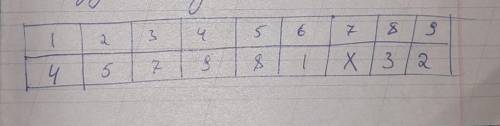 1 2 3 4 5 6 7 8 9
4 5 7 9 8 1 X 3 2